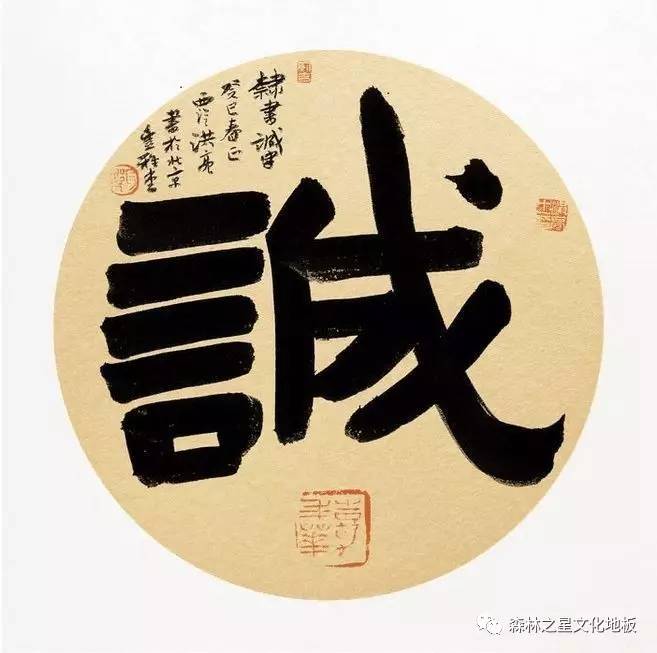 誠
隸書誠字
癸巳春正
西泠洪亮
書於北京
森林之星文化地板